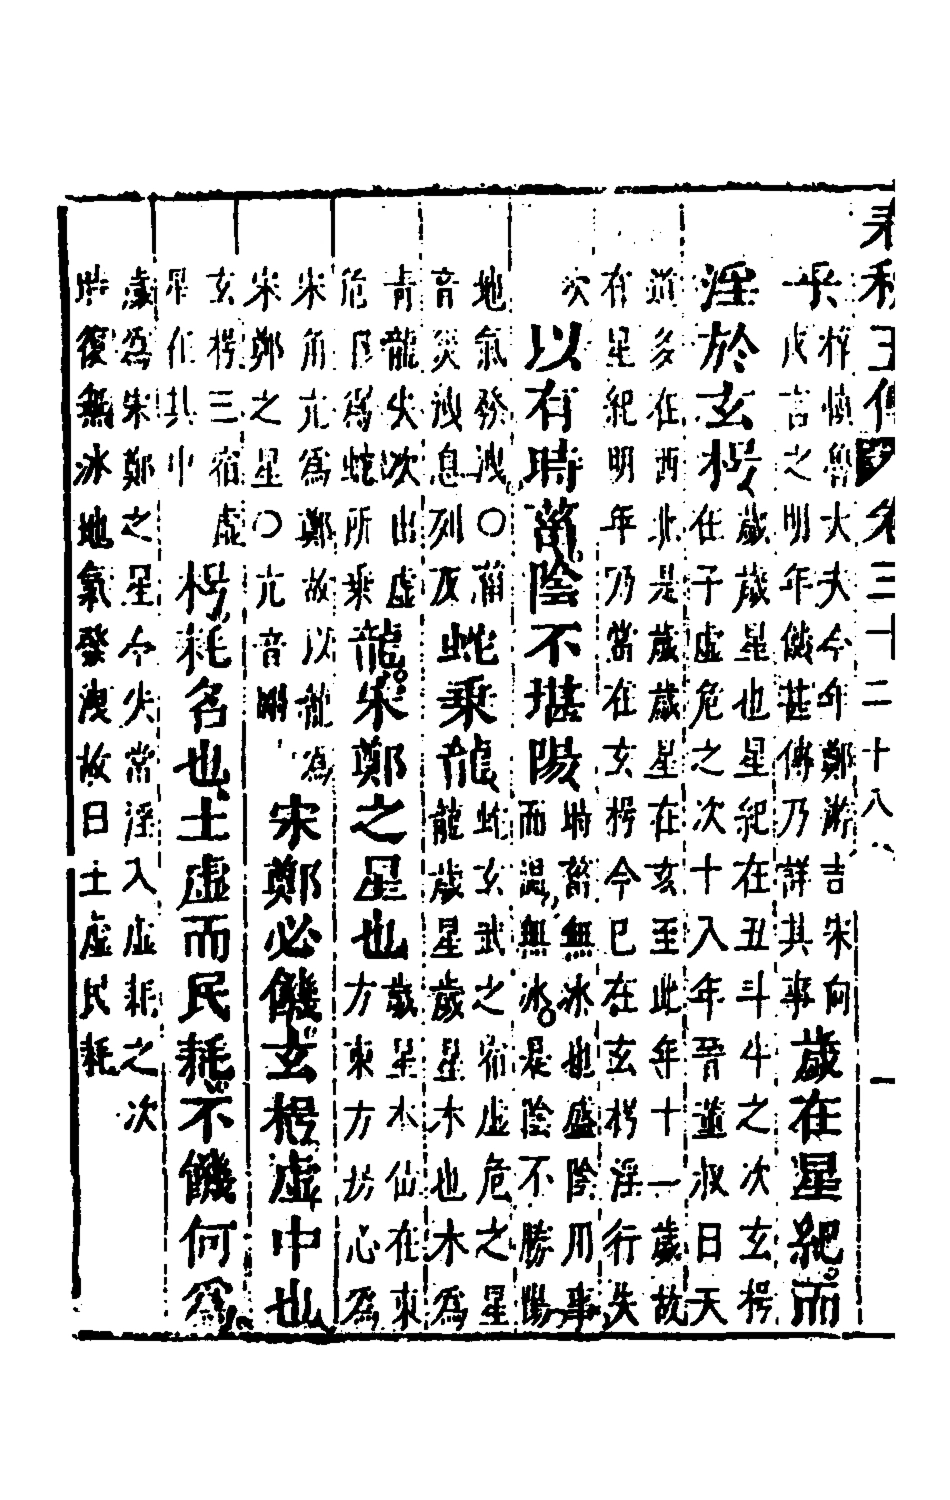 秋左傳 卷三十二 十八 一
乎梓慎魯大夫今年鄭游吉宋向
戌言之明年饑甚傳乃詳其事歲在星紀而
淫於玄枵歲歲星也星紀在丑斗牛之次玄枵
在子虛危之次十八年晉董叔曰天
道多在西北是歲歲星在亥至此年十一歲故
在星紀明年乃當在玄枵今已在玄枵淫行失
次以有時菑陰不堪陽時菑無冰也盛陰用事
而溫無冰是陰不勝陽
地氣發洩○菑
音災洩息列反蛇乘龍蛇玄武之宿虛危之星
龍歲星歲星木也木為
青龍失次出虛
危下為蛇所乘龍宋鄭之星也歲星本位在東
方東方房心為
宋角亢為鄭故以龍為
宋鄭之星○亢音剛宋鄭必饑玄枵虛中也
玄枵三宿虛
星在其中枵耗名也土虛而民耗不饑何為
歲為宋鄭之星今失常淫入虛耗之次
時復無冰地氣發洩故曰土虛民耗